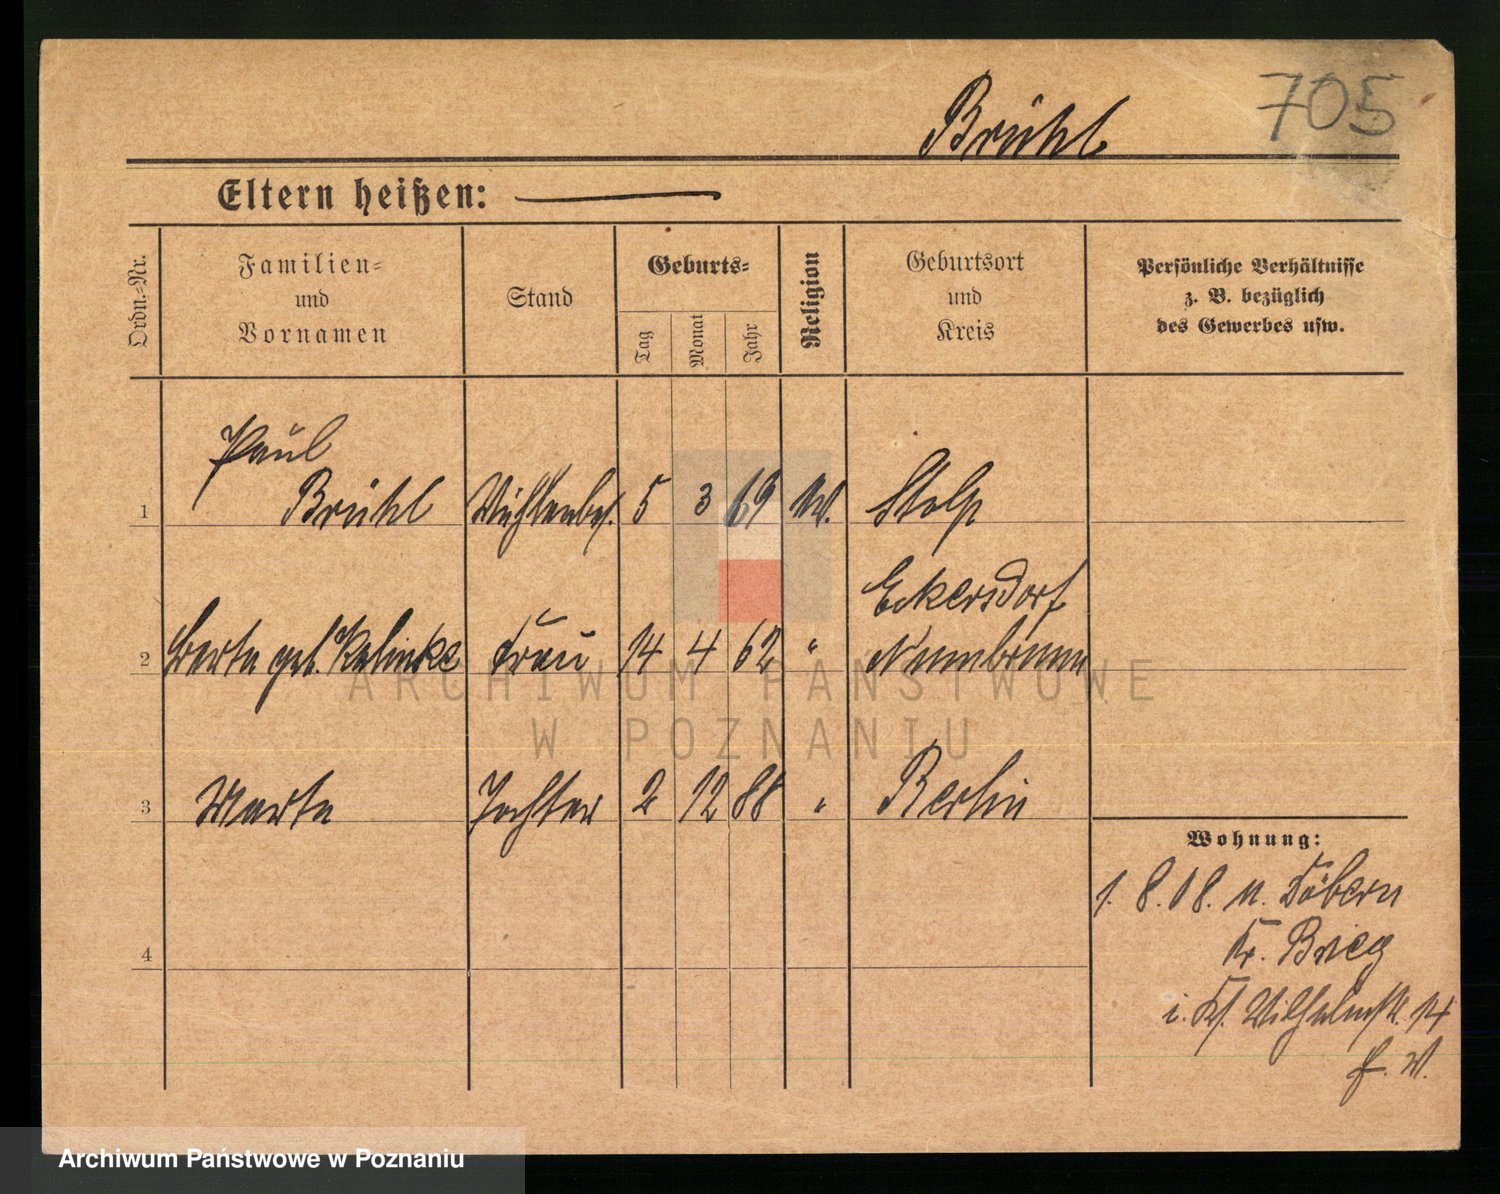 Brühl
705
Eltern heißen:
Ordn.-Nr.
Familien-
und
Vornamen
Stand
Geburts-
Tag
Monat
Jahr
Religion
Geburtsort
und
Kreis
Persönliche Verhältnisse
z. B. bezüglich
des Gewerbes usw.
Paul
1 Brühl Mühlenbes. 5 3 69 Stolp
Eckersdorf
2 Berta geb. Kalinke Frau 14 4 62 "
3 Marta Tochter 2 12 88 " Berlin
4
Wohnung:
1. 8. 08. n. Döbern
Kr. Brieg
i. Wilhelmstr. 14
ARCHIWUM PAŃSTWOWE
W POZNANIU
Archiwum Państwowe w Poznaniu